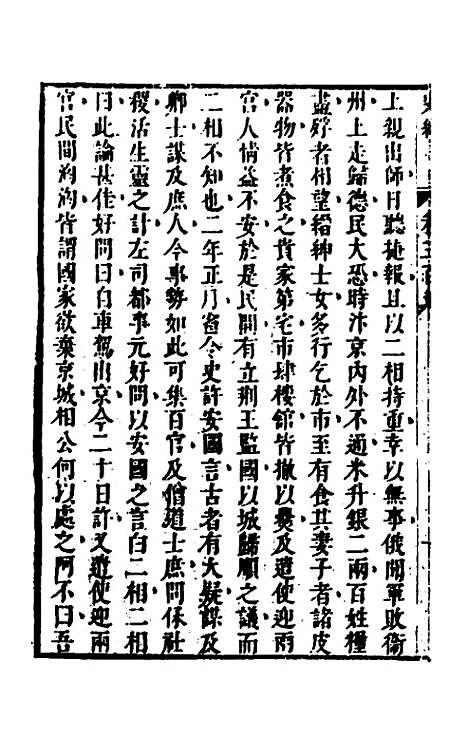 上親出師日聽捷報且以二相持重幸以無事俄聞軍敗衞
州上走歸德民大恐時汴京內外不通米升銀二兩百姓糧
盡殍者相望縉紳士女多行乞於市至有食其妻子者諸皮
器物皆煮食之貴家第宅市肆樓館皆撤以爨及遣使迎兩
宮人情益不安於是民間有立荆王監國以城歸順之議而
二相不知也二年正月省令史許安國言古者有大疑謀及
卿士謀及庶人今事勢如此可集百官及僧道士庶問保社
稷活生靈之計左司都事元好問以安國之言白二相二相
曰此論甚佳好問曰自車駕出京今二十日許又遣使迎兩
宮民間洶洶皆謂國家欲棄京城相公何以處之阿不曰吾